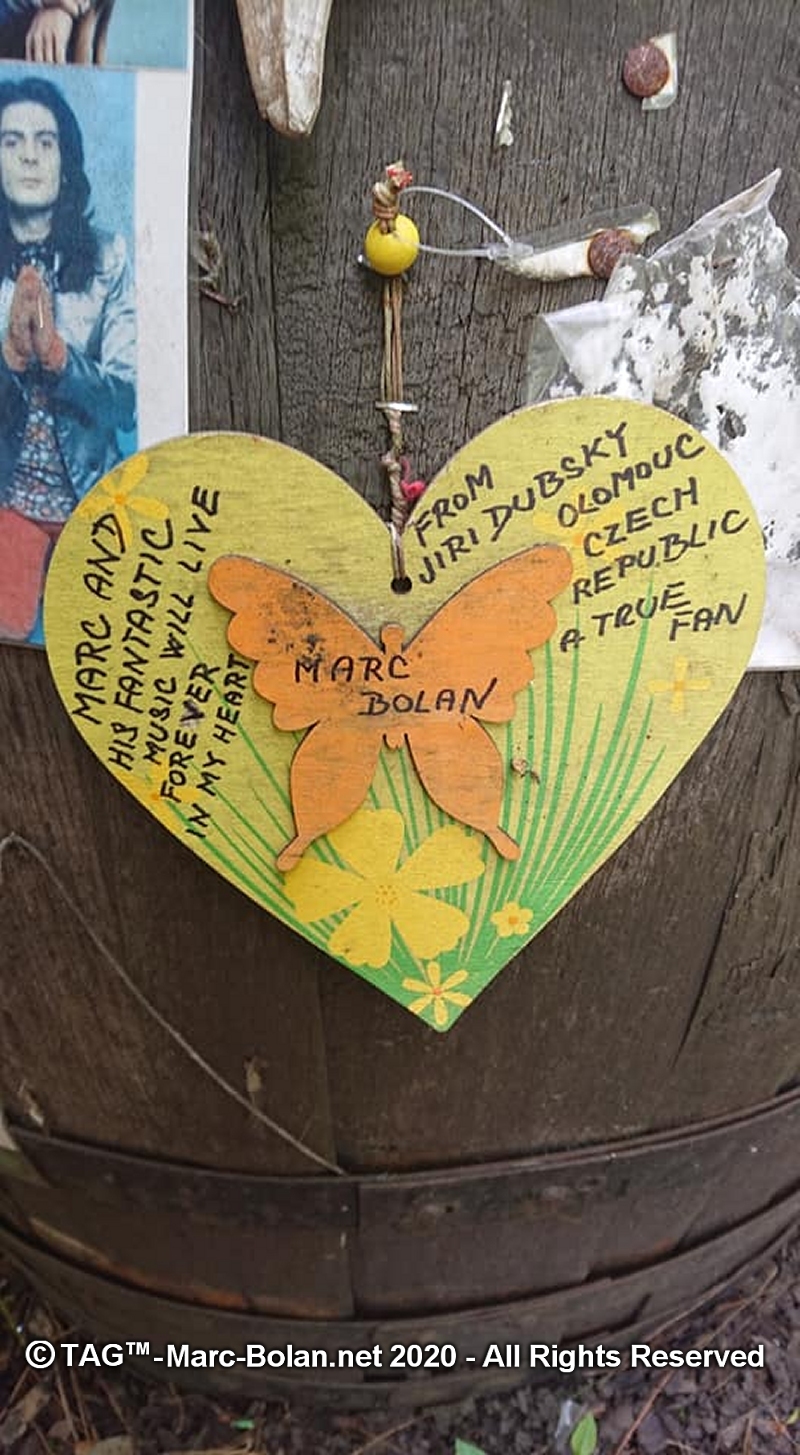 MARC AND
HIS FANTASTIC
MUSIC WILL LIVE
FOREVER
IN MY HEART
FROM
JIRI DUBSKY
OLOMOUC
CZECH
REPUBLIC
A TRUE
FAN
MARC
BOLAN
© TAG™-Marc-Bolan.net 2020 - All Rights Reserved